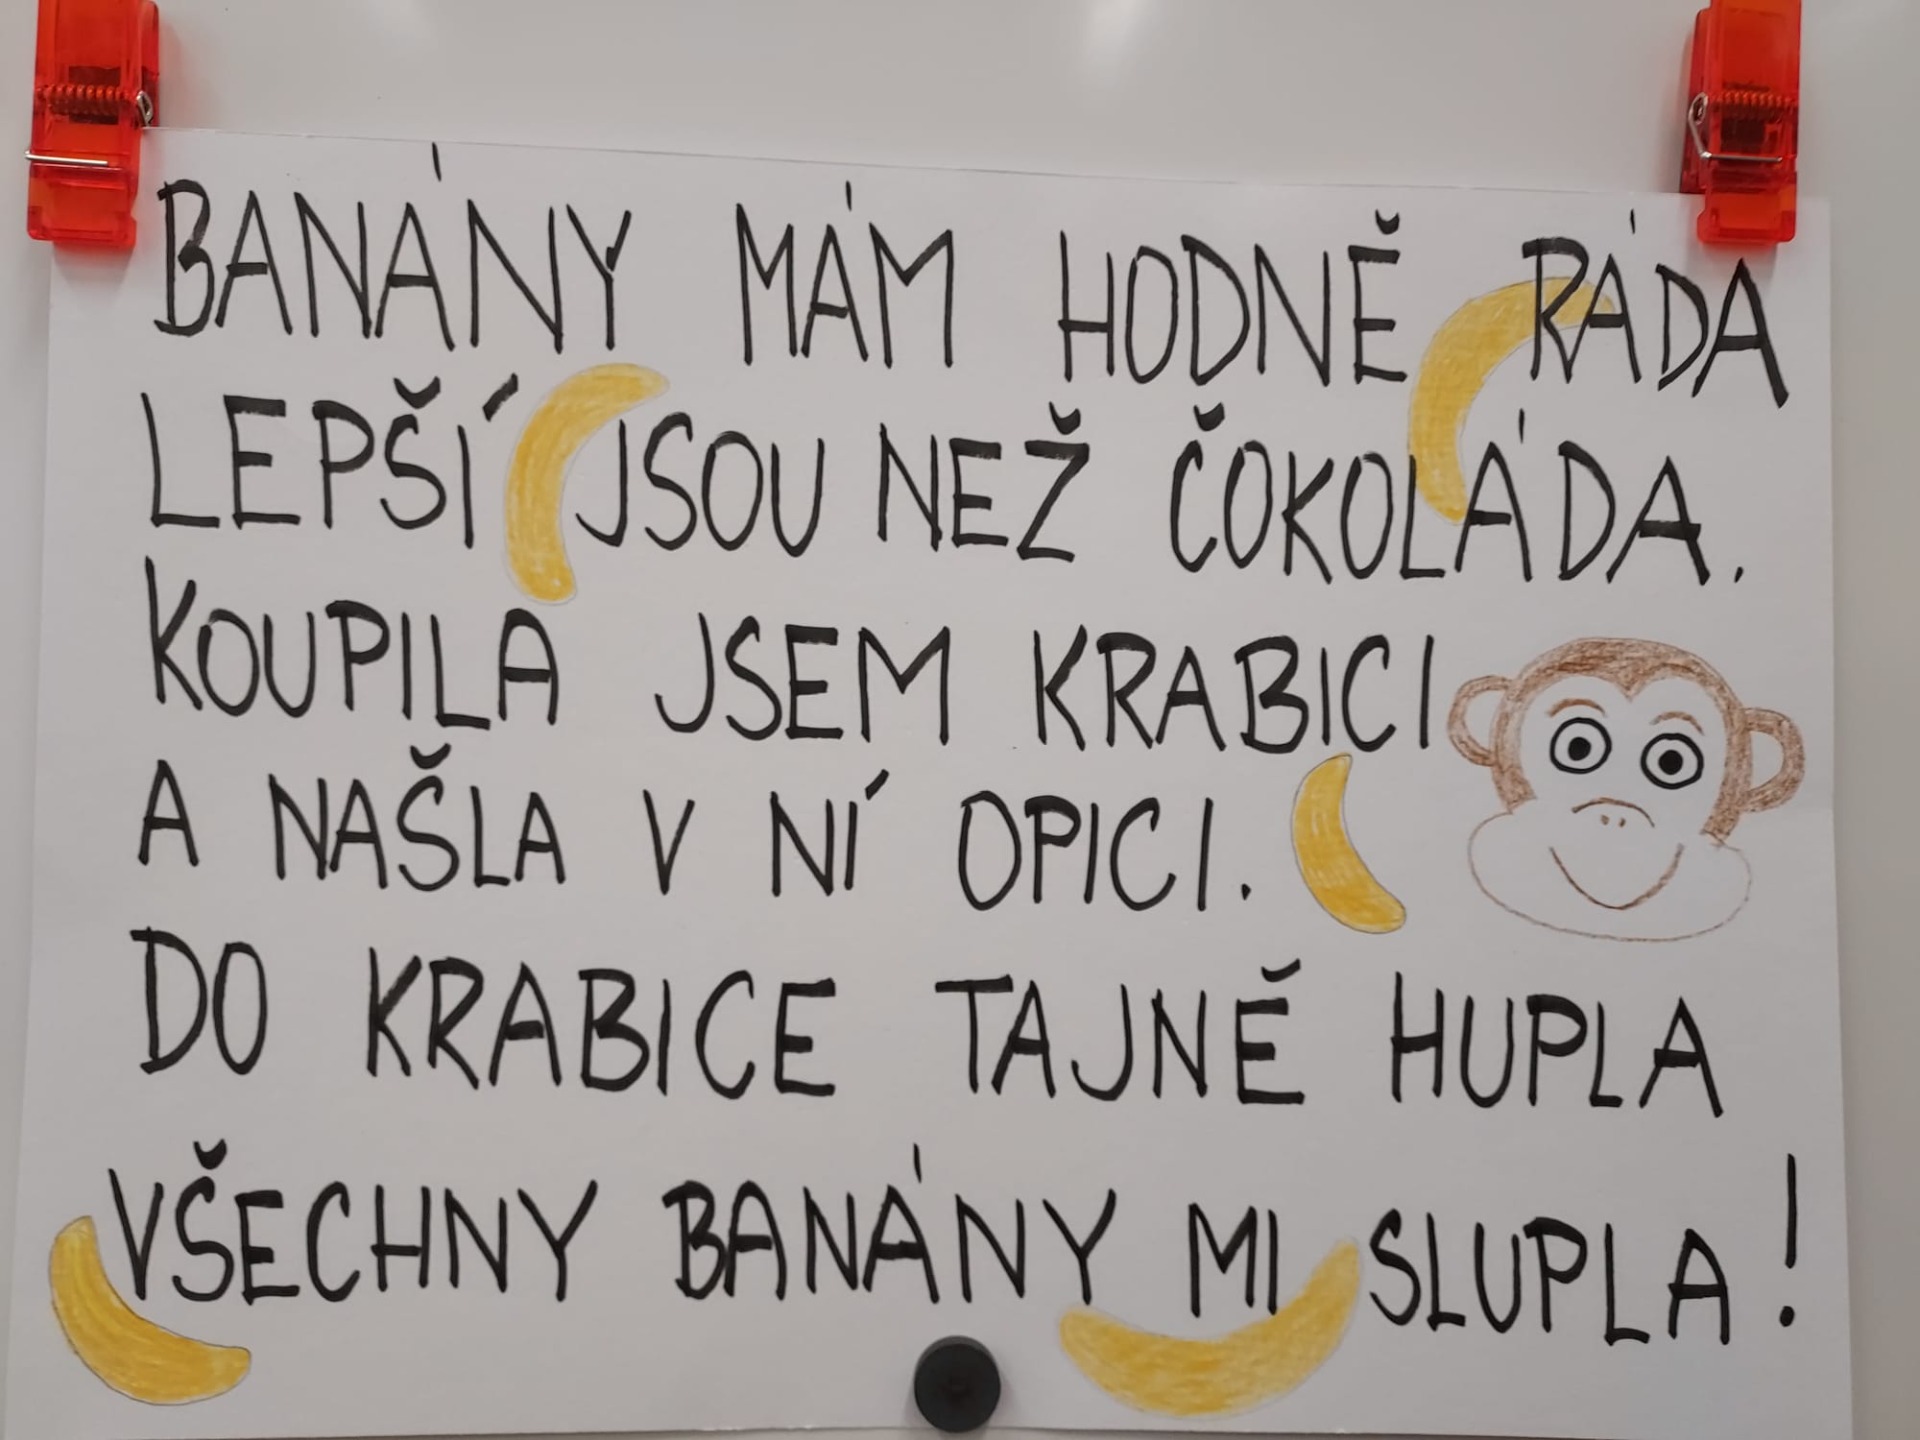 BANÁNY MÁM HODNĚ RÁDA
LEPŠÍ JSOU NEŽ ČOKOLÁDA.
KOUPILA JSEM KRABICI
A NAŠLA V NÍ OPICI.
DO KRABICE TAJNĚ HUPLA
VŠECHNY BANÁNY MI SLUPLA!